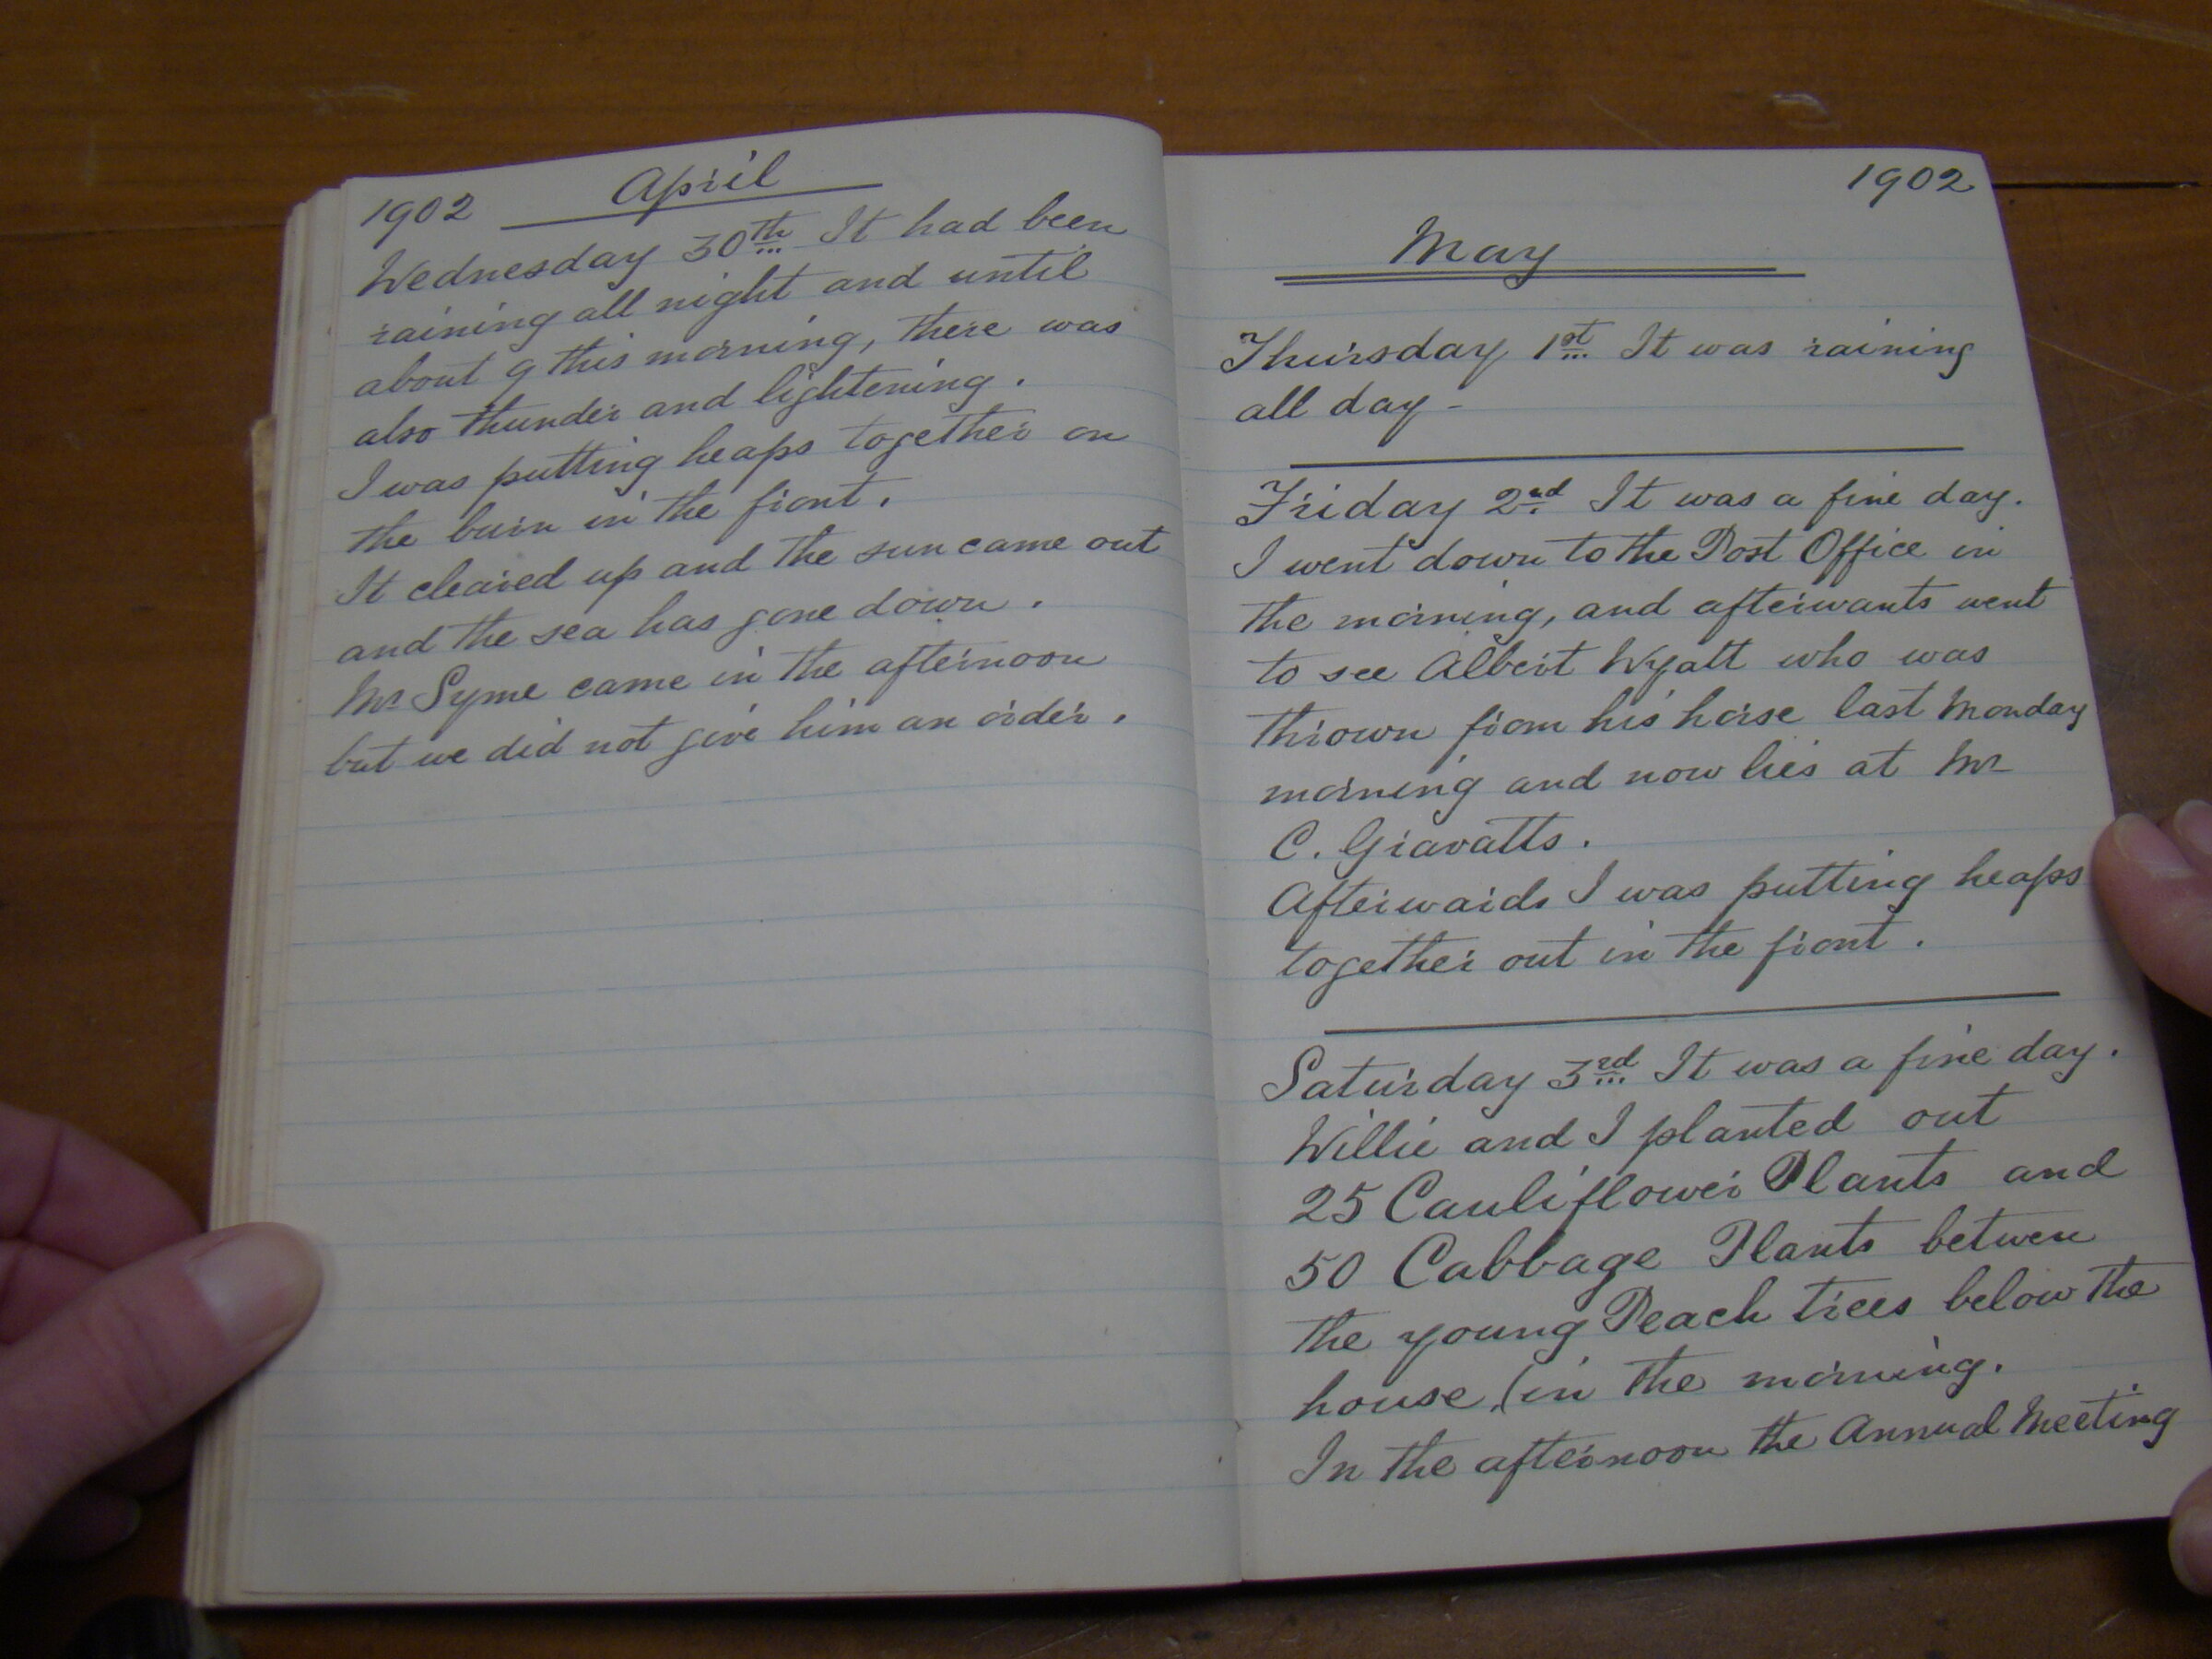 1902 April
Wednesday 30th It had been
raining all night and until
about 9 this morning, there was
also thunder and lightening.
I was putting heaps together on
the burn in the front.
It cleared up and the sun came out
and the sea has gone down.
Mr Syme came in the afternoon
but we did not give him an order.
1902
May
Thursday 1st It was raining
all day -
Friday 2nd It was a fine day.
I went down to the Post Office in
the morning, and afterwants went
to see Albert Wyatt who was
thrown from his horse last Monday
morning and now lies at Mr
C. Gravatts.
Afterwards I was putting heaps
together out in the front.
Saturday 3rd It was a fine day.
Willie and I planted out
25 Cauliflower Plants and
50 Cabbage Plants betwen
the young Peach trees below the
house, (in the morning.
In the afternoon the Annual Meeting